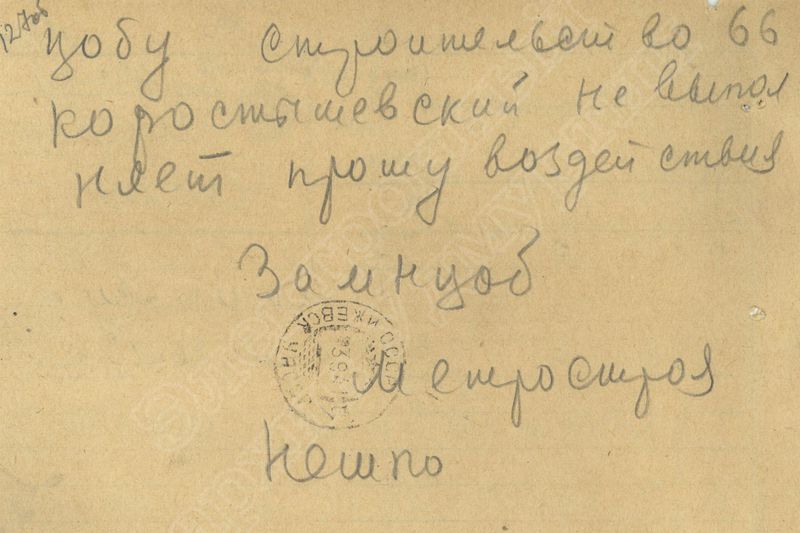 цобу строительство 66
коростышевский не выпол
няет прошу воздействия
Замнцоб
Метростроя
Нешпо
ИЖЕВСК
СССР